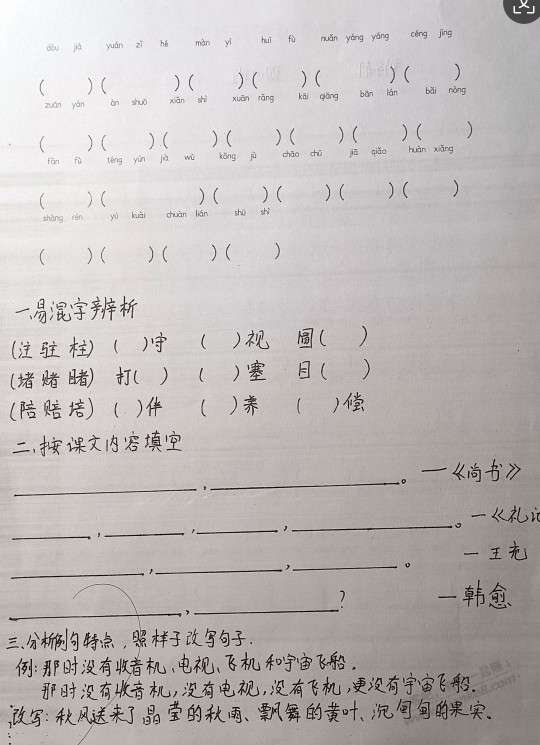 dòu jiá yuán zǐ hé màn yì huī fù nuǎn yáng yáng céng jīng
( ) ( ) ( ) ( ) ( ) ( )
zuān yán àn shuō xiān shì xuān rǎng kāi qiāng bān lán bǎi nòng
( ) ( ) ( ) ( ) ( ) ( ) ( )
fǎn fù téng yún jià wù kōng jù chāo chū jiā qiáo huàn xiǎng
( ) ( ) ( ) ( ) ( ) ( )
shāng rén yú kuài chuàn lián shū shì
( ) ( ) ( ) ( )
一.易混字辨析
(注 驻 柱) ( )守 ( )视 圆( )
(堵 赌 睹) 打( ) ( )塞 目( )
(陪 赔 培) ( )伴 ( )养 ( )偿
二、按课文内容填空
,。—《尚书》
,,,。—《礼记
,,。—王充
,? —韩愈
三.分析例句特点,照样子改写句子.
例:那时没有收音机、电视、飞机和宇宙飞船。
那时没有收音机,没有电视,没有飞机,更没有宇宙飞船。
改写:秋风送来了晶莹的秋雨、飘舞的黄叶、沉甸甸的果实。